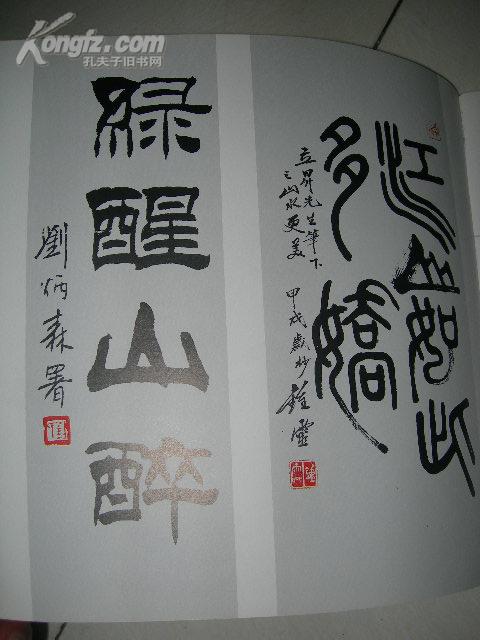 Kongfz.com
孔夫子旧书网
江山如此
多嬌
立昇先生筆下
之山水更美
甲戌歲抄 鍾靈
綠醒山醉
劉炳森署